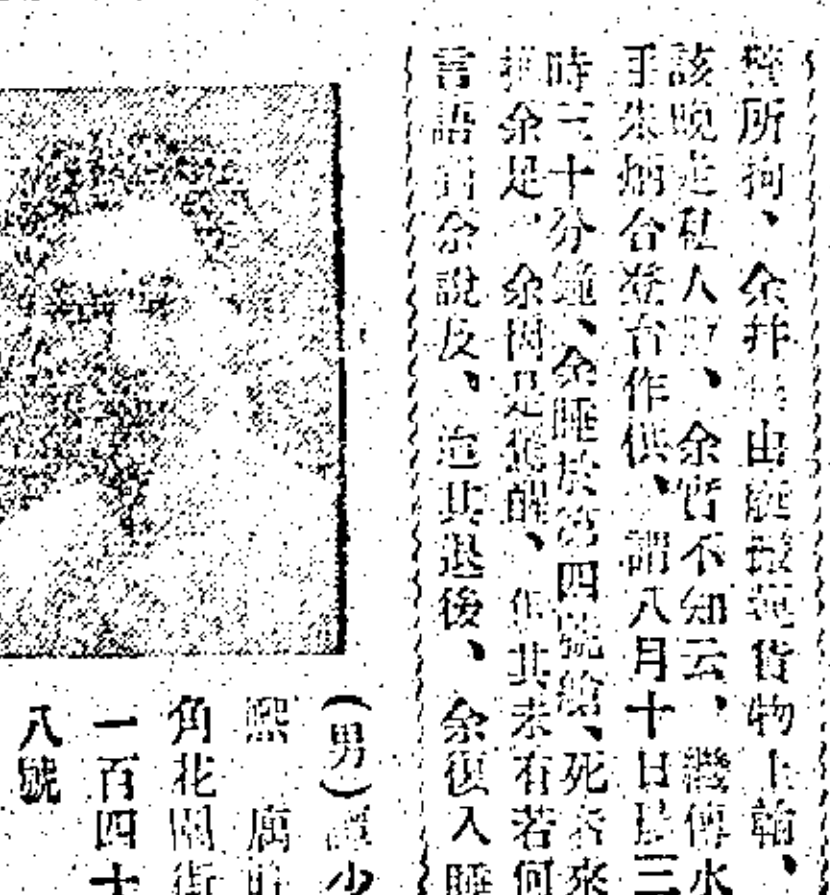 所拘、余并 由 貨物上輪、
該晚走私人 、余實不知云、 傳水
手朱炳台登台作供、謂八月十日晨三
時三十分鐘、余睡於第四號艙、死者來
余足、余因是 醒、但其未有若何
言語 余說及、迨其退後、余復入睡
(男) 少
熙 廣
角花園街
一百四十
八號